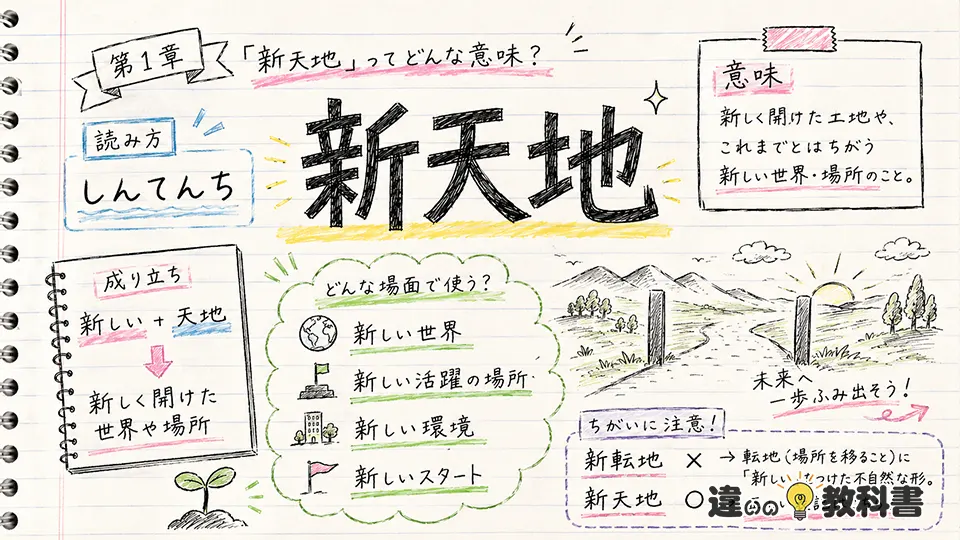 第1章
「新天地」ってどんな意味?
新天地
読み方
しんてんち
意味
新しく開けた土地や、
これまでとはちがう
新しい世界・場所のこと。
成り立ち
新しい + 天地
新しく開けた
世界や場所
どんな場面で使う?
新しい世界
新しい活躍の場所
新しい環境
新しいスタート
未来へ
一歩ふみ出そう!
ちがいに注意!
新転地 × → 転地(場所を移ること)に
「新しい つけた不自然な形。
新天地 ○
違いの教科書